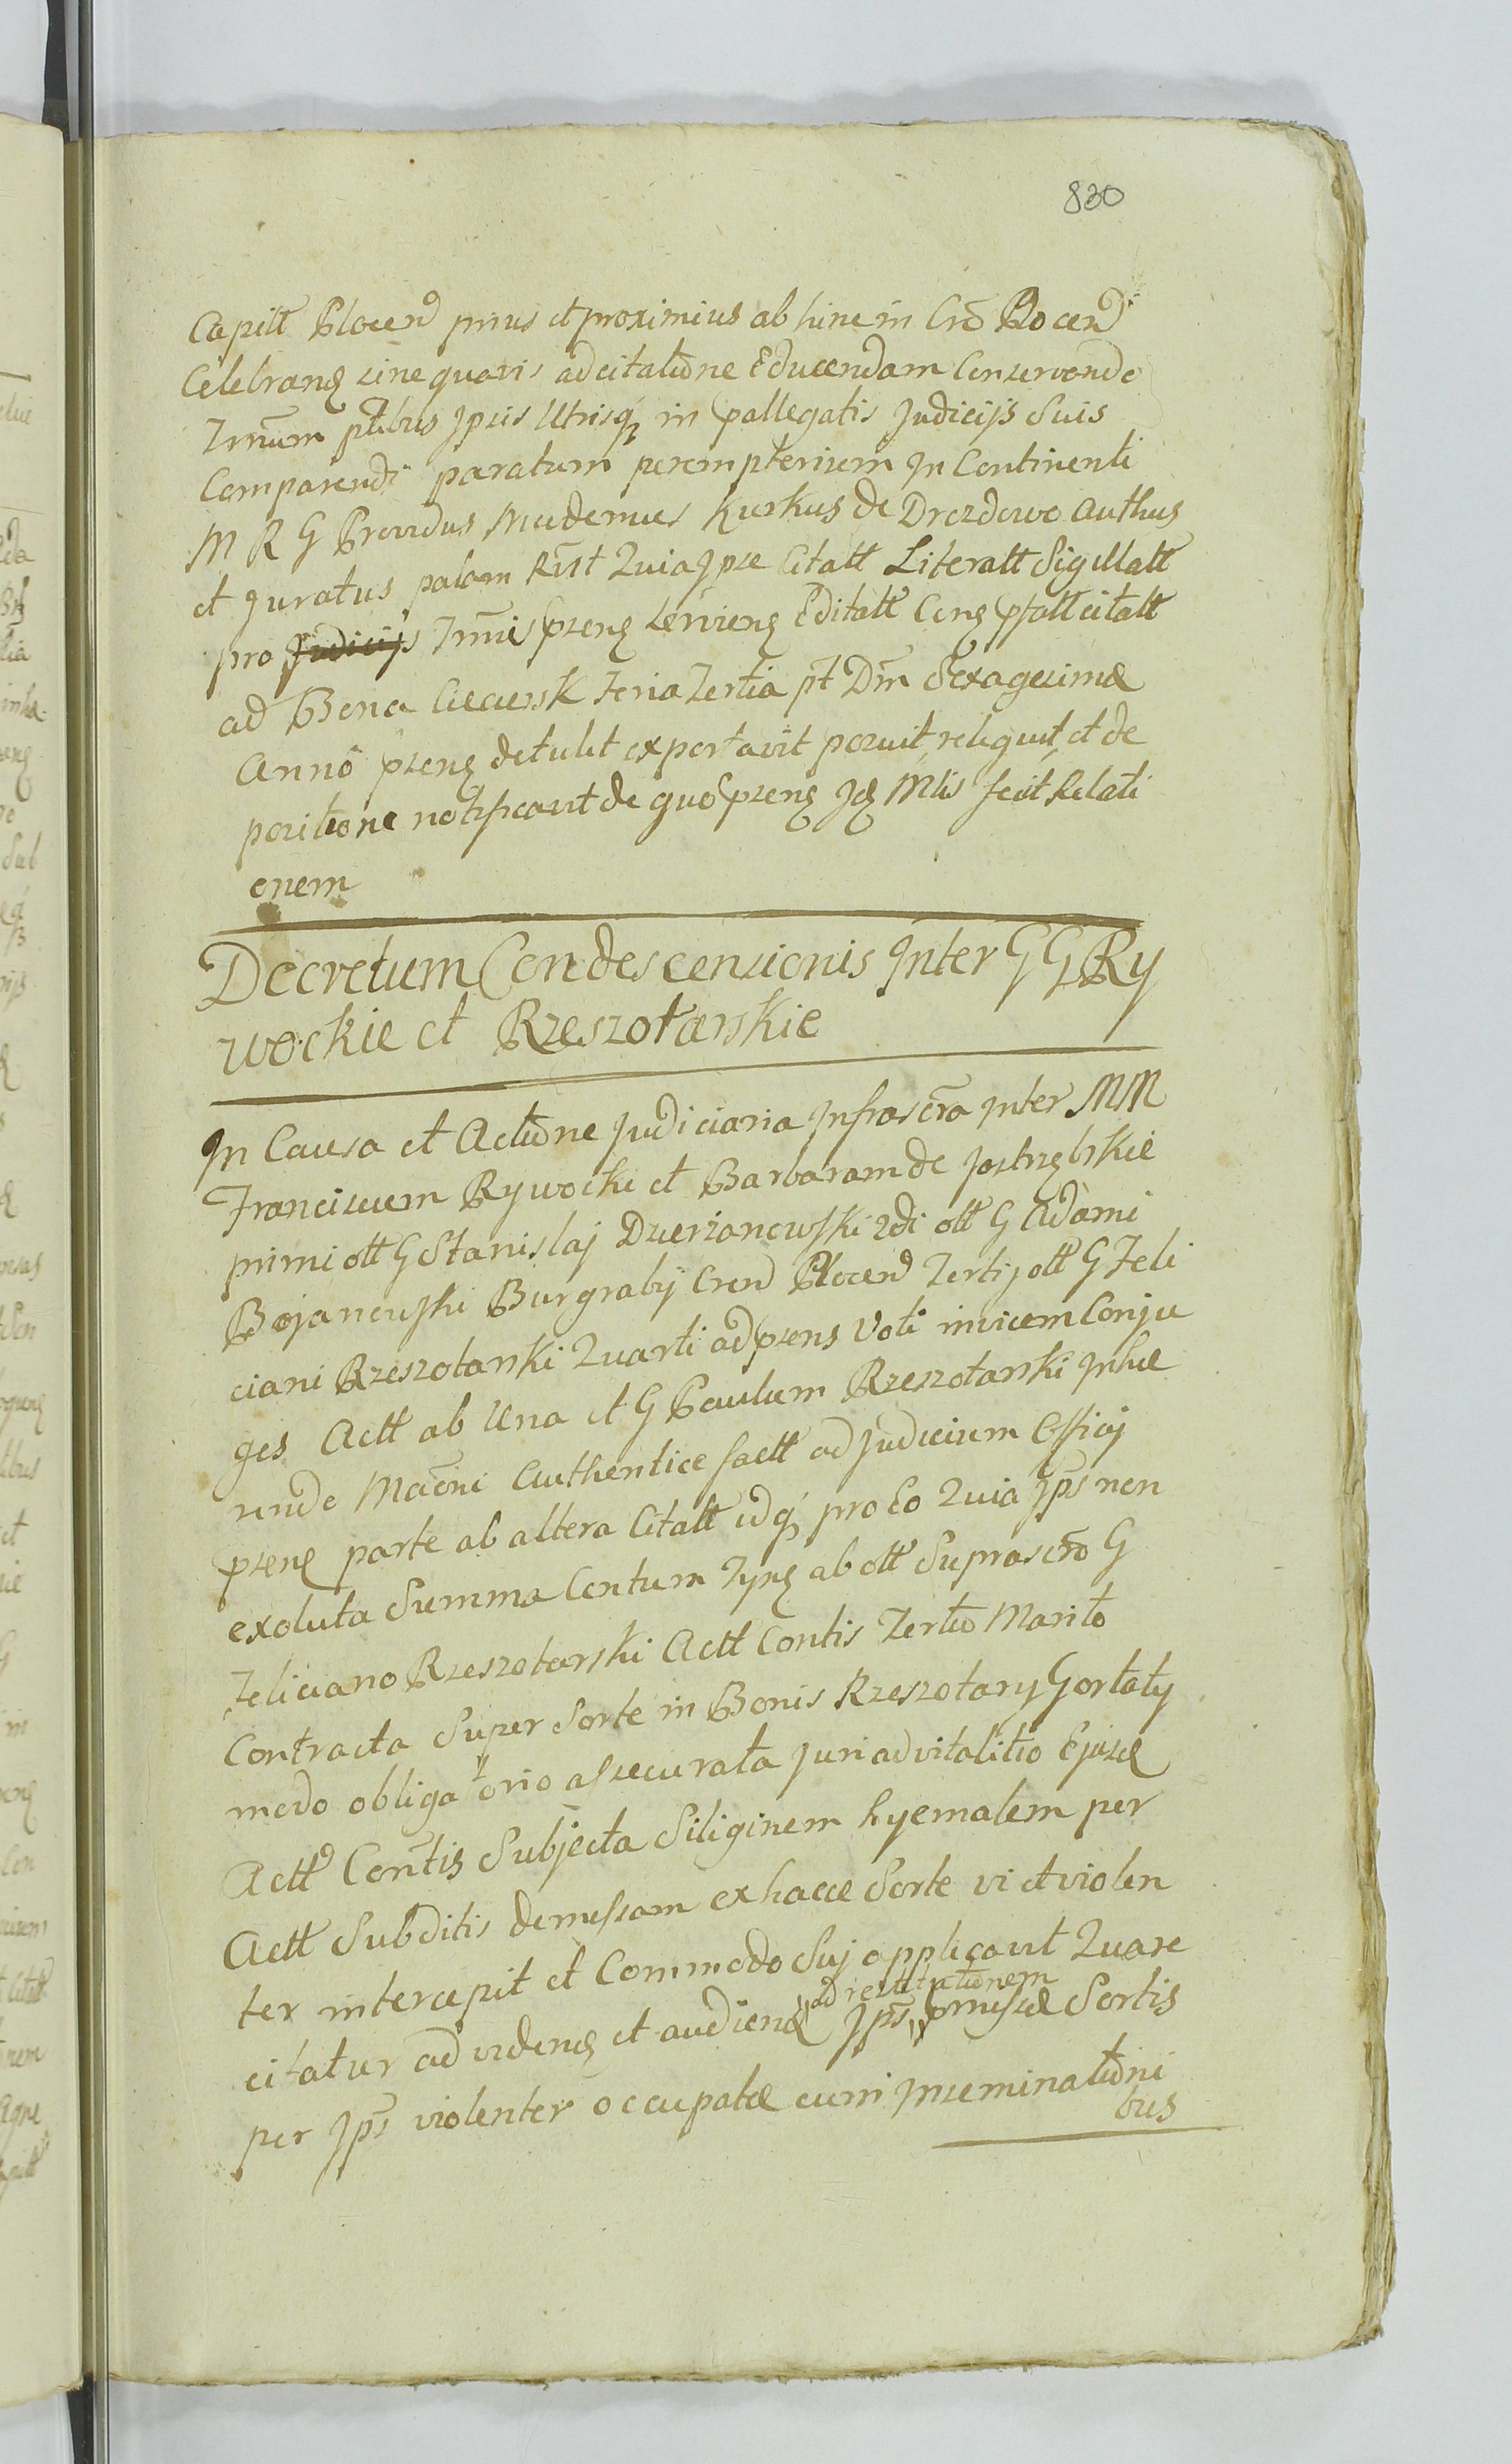 830
Capitt Plocen prius et proximius ab hinc in Cro Plocen
Celebrand sine quavis adcitatione Educendam Conservando
Trmum ptibus Ipsis Utrisq in pallegatis Judicijs Suis
Comparendi paratum peremptorium In Continenti
M R G Providus Mudemus Kurkus de Drozdowo Authus
et Juratus palam Rint Quia Ipse Citatt Literatt Sigillatt
pro Judicijs Trmis pseng serviens Editatt Cong pfatt citatt
ad Bona Cieciersk Feria Tertia pt Dm Sexagesimæ
Anno pseng detulit exportavit posuit reliquit et de
positione notificavit de quo pseng Id Mlis fecit Relati
onem
Decretum Condescensionis Inter GG Ry
wockie et Rzeszotarskie
In Causa et Actione Judiciaria Infrascra Inter MM
Franciscum Rywocki et Barbaram de Jastrzębskie
primi ott G Stanislaj Dzierżanowski 2di ott G Adami
Bojanowski Burgrabij Cren Plocen Tertij ott G Feli
ciani Rzeszotarski Quarti ad psens Voti invicem Conju
ges Actt ab Una et G Paulum Rzeszotarski Inhæ
rendo Maoni Authentice factt ad Judicium Officij
pseng parte ab altera Citatt idq pro Eo Quia Ips non
exoluta Summa Centum Tyng ab ott Suprascro G
Feliciano Rzeszotarski Actt Contis Tertio Marito
Contracta Super Sorte in Bonis Rzeszotary Gortaty
modo obligatorio assecurata Juri advitalitio Ejusd
Actt Contis Subjecta Siliginem hyemalem per
Actt Subditis demessam ex hacce Sorte vi et violen
ter intercepit et Commodo Suj applicavit Quare
citatur ad videnđ et audienđ ad restitutionem Ips pmissæ Sortis
per Ips violenter occupatæ cum Inseminationi
bus